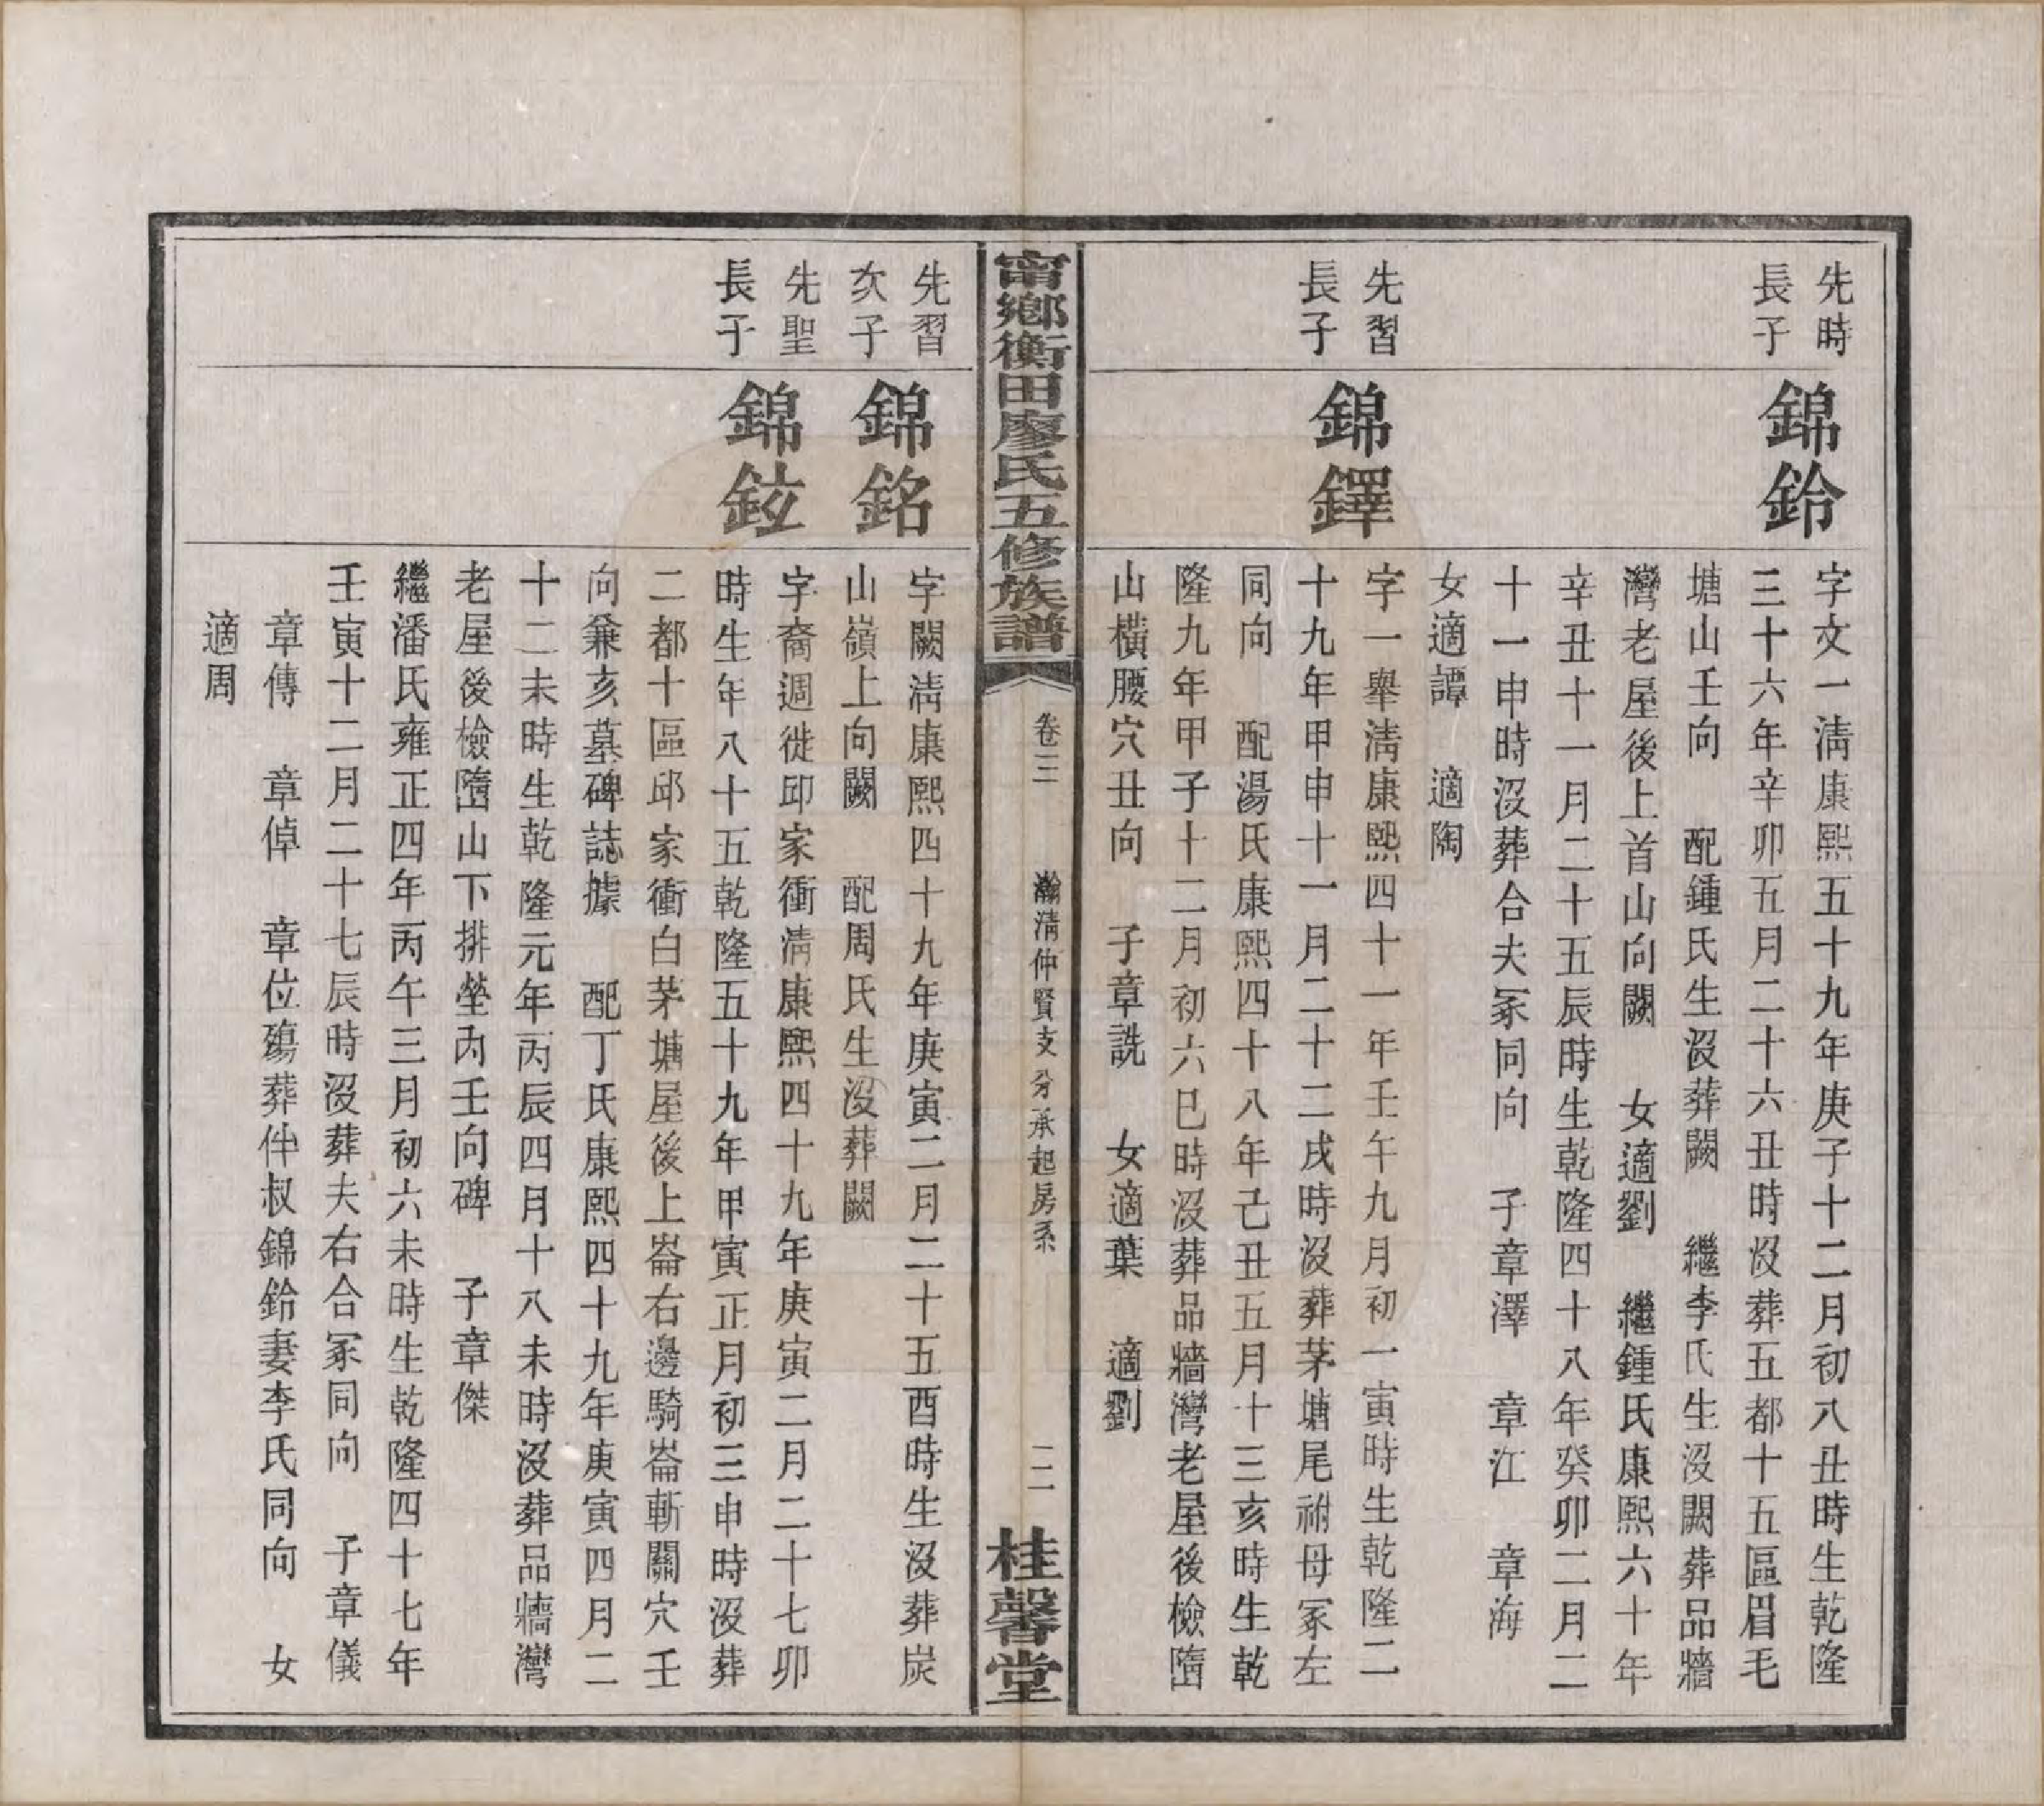 先時
長子
錦鈴
字文一清康熙五十九年庚子十二月初八丑時生乾隆
三十六年辛卯五月二十六丑時沒葬五都十五區眉毛
塘山壬向　配鍾氏生沒葬闕　繼李氏生沒闕葬品牆
灣老屋後上首山向闕　女適劉　繼鍾氏康熙六十年
辛丑十一月二十五辰時生乾隆四十八年癸卯二月二
十一申時沒葬合夫冢同向　子章澤　章江　章海
女適譚　適陶
先習
長子
錦鐸
字一舉清康熙四十一年壬午九月初一寅時生乾隆二
十九年甲申十一月二十二戌時沒葬茅塘尾祔母冢左
同向　配湯氏康熙四十八年己丑五月十三亥時生乾
隆九年甲子十二月初六巳時沒葬品牆灣老屋後檢墮
山橫腰穴丑向　子章詵　女適葉　適劉
甯鄉衡田廖氏五修族譜
卷三
瀚清仲賢支分承起房系
二
桂馨堂
先習
次子
錦銘
字闕清康熙四十九年庚寅二月二十五酉時生沒葬炭
山嶺上向闕　配周氏生沒葬闕
先聖
長子
錦鉉
字裔週徙邱家衝清康熙四十九年庚寅二月二十七卯
時生年八十五乾隆五十九年甲寅正月初三申時沒葬
二都十區邱家衝白茅塘屋後上崙右邊騎崙斬關穴壬
向兼亥墓碑誌據　配丁氏康熙四十九年庚寅四月二
十二未時生乾隆元年丙辰四月十八未時沒葬品牆灣
老屋後檢墮山下排塋內壬向碑　子章傑
繼潘氏雍正四年丙午三月初六未時生乾隆四十七年
壬寅十二月二十七辰時沒葬夫右合冢同向　子章儀
章傳　章倬　章位殤葬仲叔錦鈴妻李氏同向　女
適周